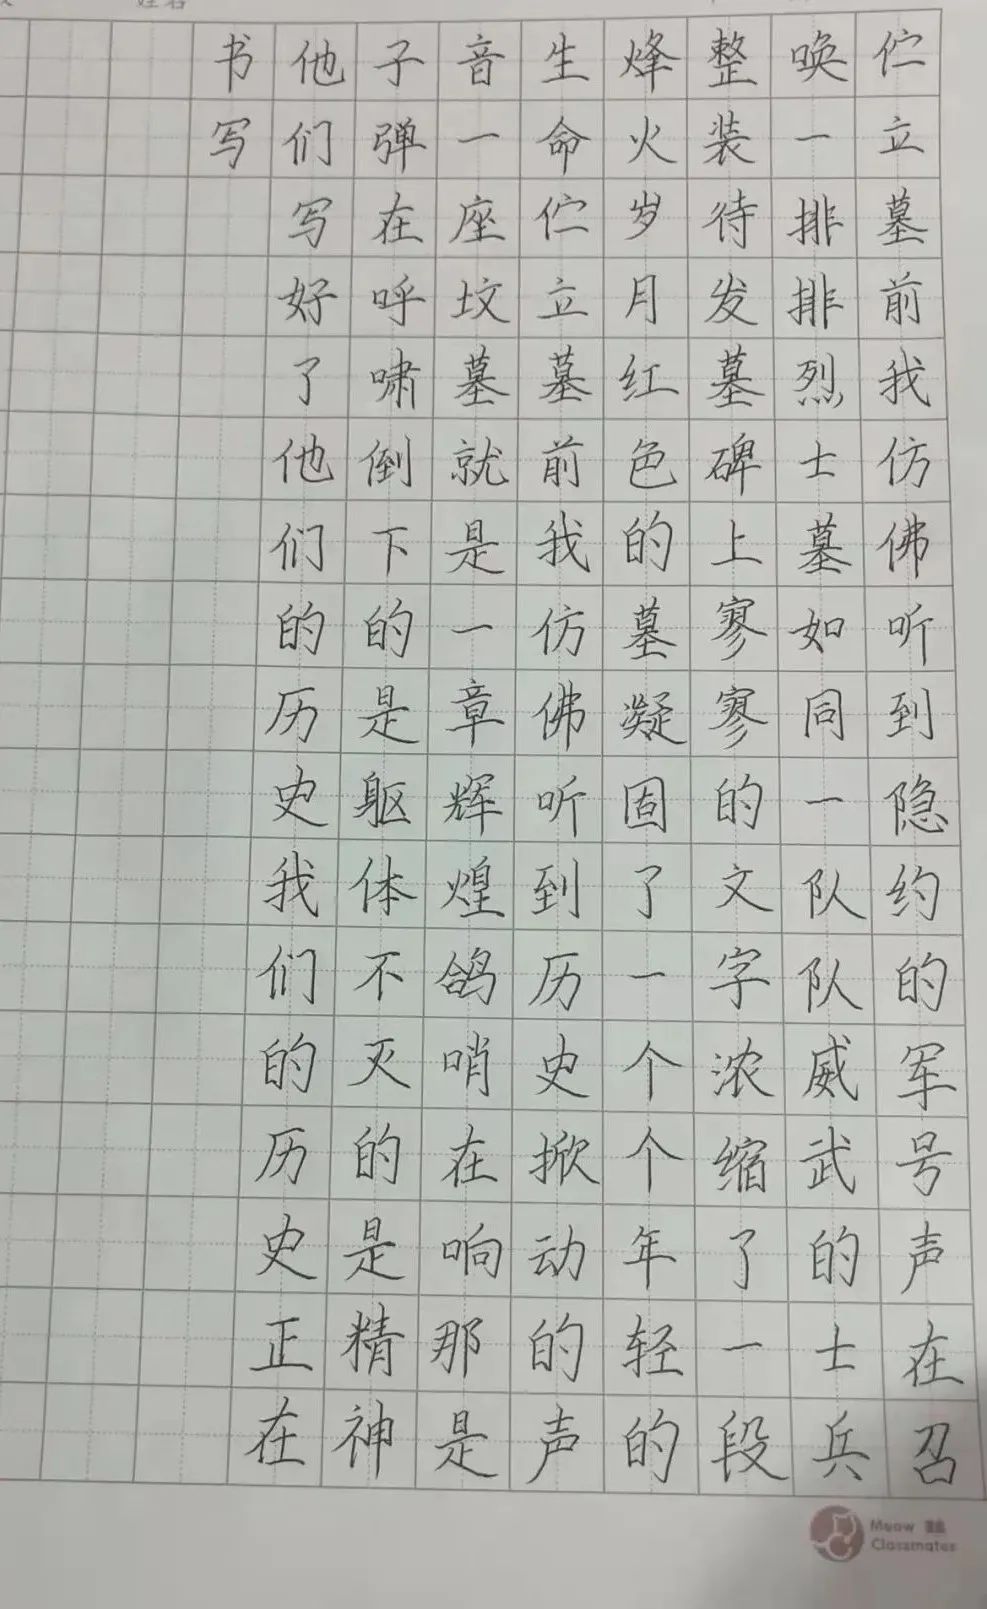 姓名
伫立墓前我仿佛听到隐约的军号声在召
唤一排排烈士墓如同一队队威武的士兵
整装待发墓碑上寥寥的文字浓缩了一段
烽火岁月红色的墓凝固了一个个年轻的
生命伫立墓前我仿佛听到历史掀动的声
音一座坟墓就是一章辉煌鸽哨在响那是
子弹在呼啸倒下的是躯体不灭的是精神
他们写好了他们的历史我们的历史正在
书写
Meow
Classmates